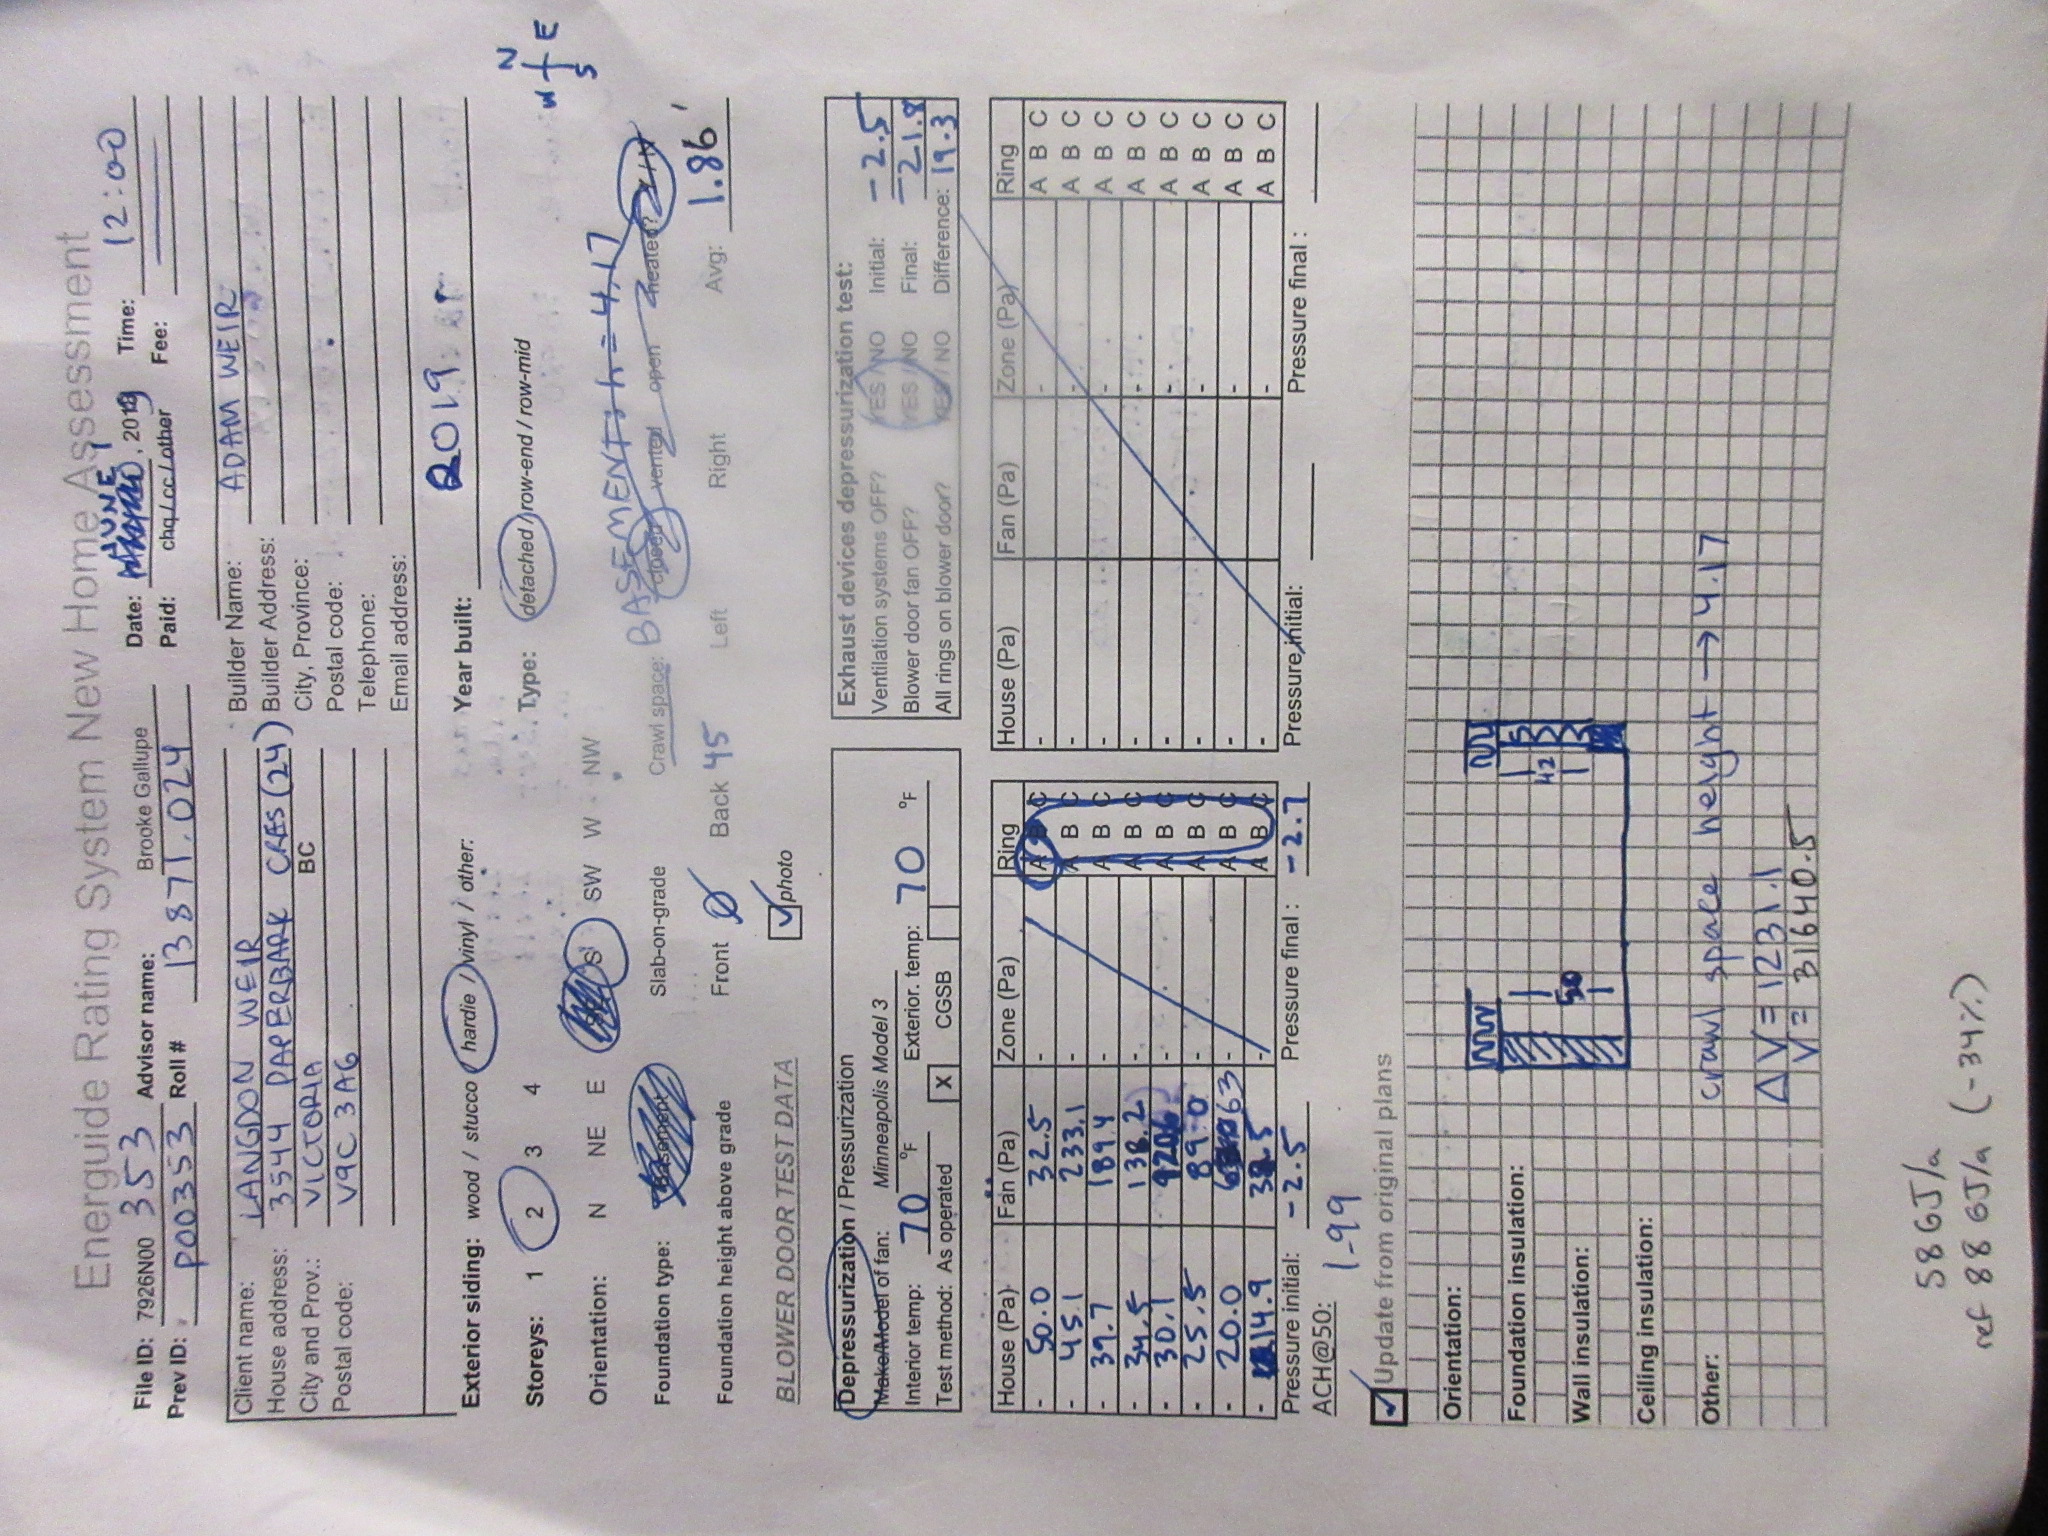 Energuide Rating System New Home Assessment
File ID: 7926N00 353 Advisor name: Brooke Gallupe Date: JUNE 1, 2019 Time: 12:00
Prev ID: P00353 Roll # 13877.024 Paid: chq / cc / other Fee:
Client name: LANGDON WEIR
House address: 3544 PAPERBARK CRES (24)
City and Prov.: VICTORIA BC
Postal code: V9C 3A6
Builder Name: ADAM WEIR
Builder Address:
City, Province:
Postal code:
Telephone:
Email address:
Exterior siding: wood / stucco / hardie / vinyl / other: Year built: 2019
Storeys: 1 2 3 4 Type: detached / row-end / row-mid
N E S W
Orientation: N NE E S SW W NW
BASEMENT h = 4.17
Foundation type: Basement Slab-on-grade Crawl space: closed vented open heated? Y / N
Foundation height above grade Front Ø Back 45 Left Right Avg: 1.86'
photo
BLOWER DOOR TEST DATA
Depressurization / Pressurization
Make/Model of fan: Minneapolis Model 3
Interior temp: 70 °F Exterior. temp: 70 °F
Test method: As operated X CGSB
Exhaust devices depressurization test:
Ventilation systems OFF? YES / NO Initial: -2.5
Blower door fan OFF? YES / NO Final: -21.8
All rings on blower door? YES / NO Difference: 19.3
House (Pa) Fan (Pa) Zone (Pa) Ring
- 50.0 32.5 - A B C
- 45.1 233.1 - A B C
- 39.7 189.4 - A B C
- 34.5 138.2 - A B C
- 30.1 - A B C
- 25.5 89.0 - A B C
- 20.0 63 - A B C
- 14.9 38.5 - A B C
Pressure initial: -2.5 Pressure final : -2.7
ACH@50: 1.99
House (Pa) Fan (Pa) Zone (Pa) Ring
- - A B C
- - A B C
- - A B C
- - A B C
- - A B C
- - A B C
- - A B C
- - A B C
Pressure initial: Pressure final :
Update from original plans
Orientation:
Foundation insulation:
Wall insulation:
50
42
Ceiling insulation:
Other: crawl space height → 4.17
ΔV = 1231.1
V = 31640.5
58 GJ/a
ref 88 GJ/a (-34%)